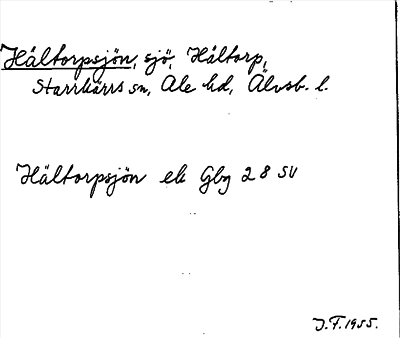 Hältorpsjön, sjö, Hältorp,
Starrkärrs sn, Ale hd, Älvsb. l.
Hältorpsjön ek Gbg 28 SV
J.F. 1955.